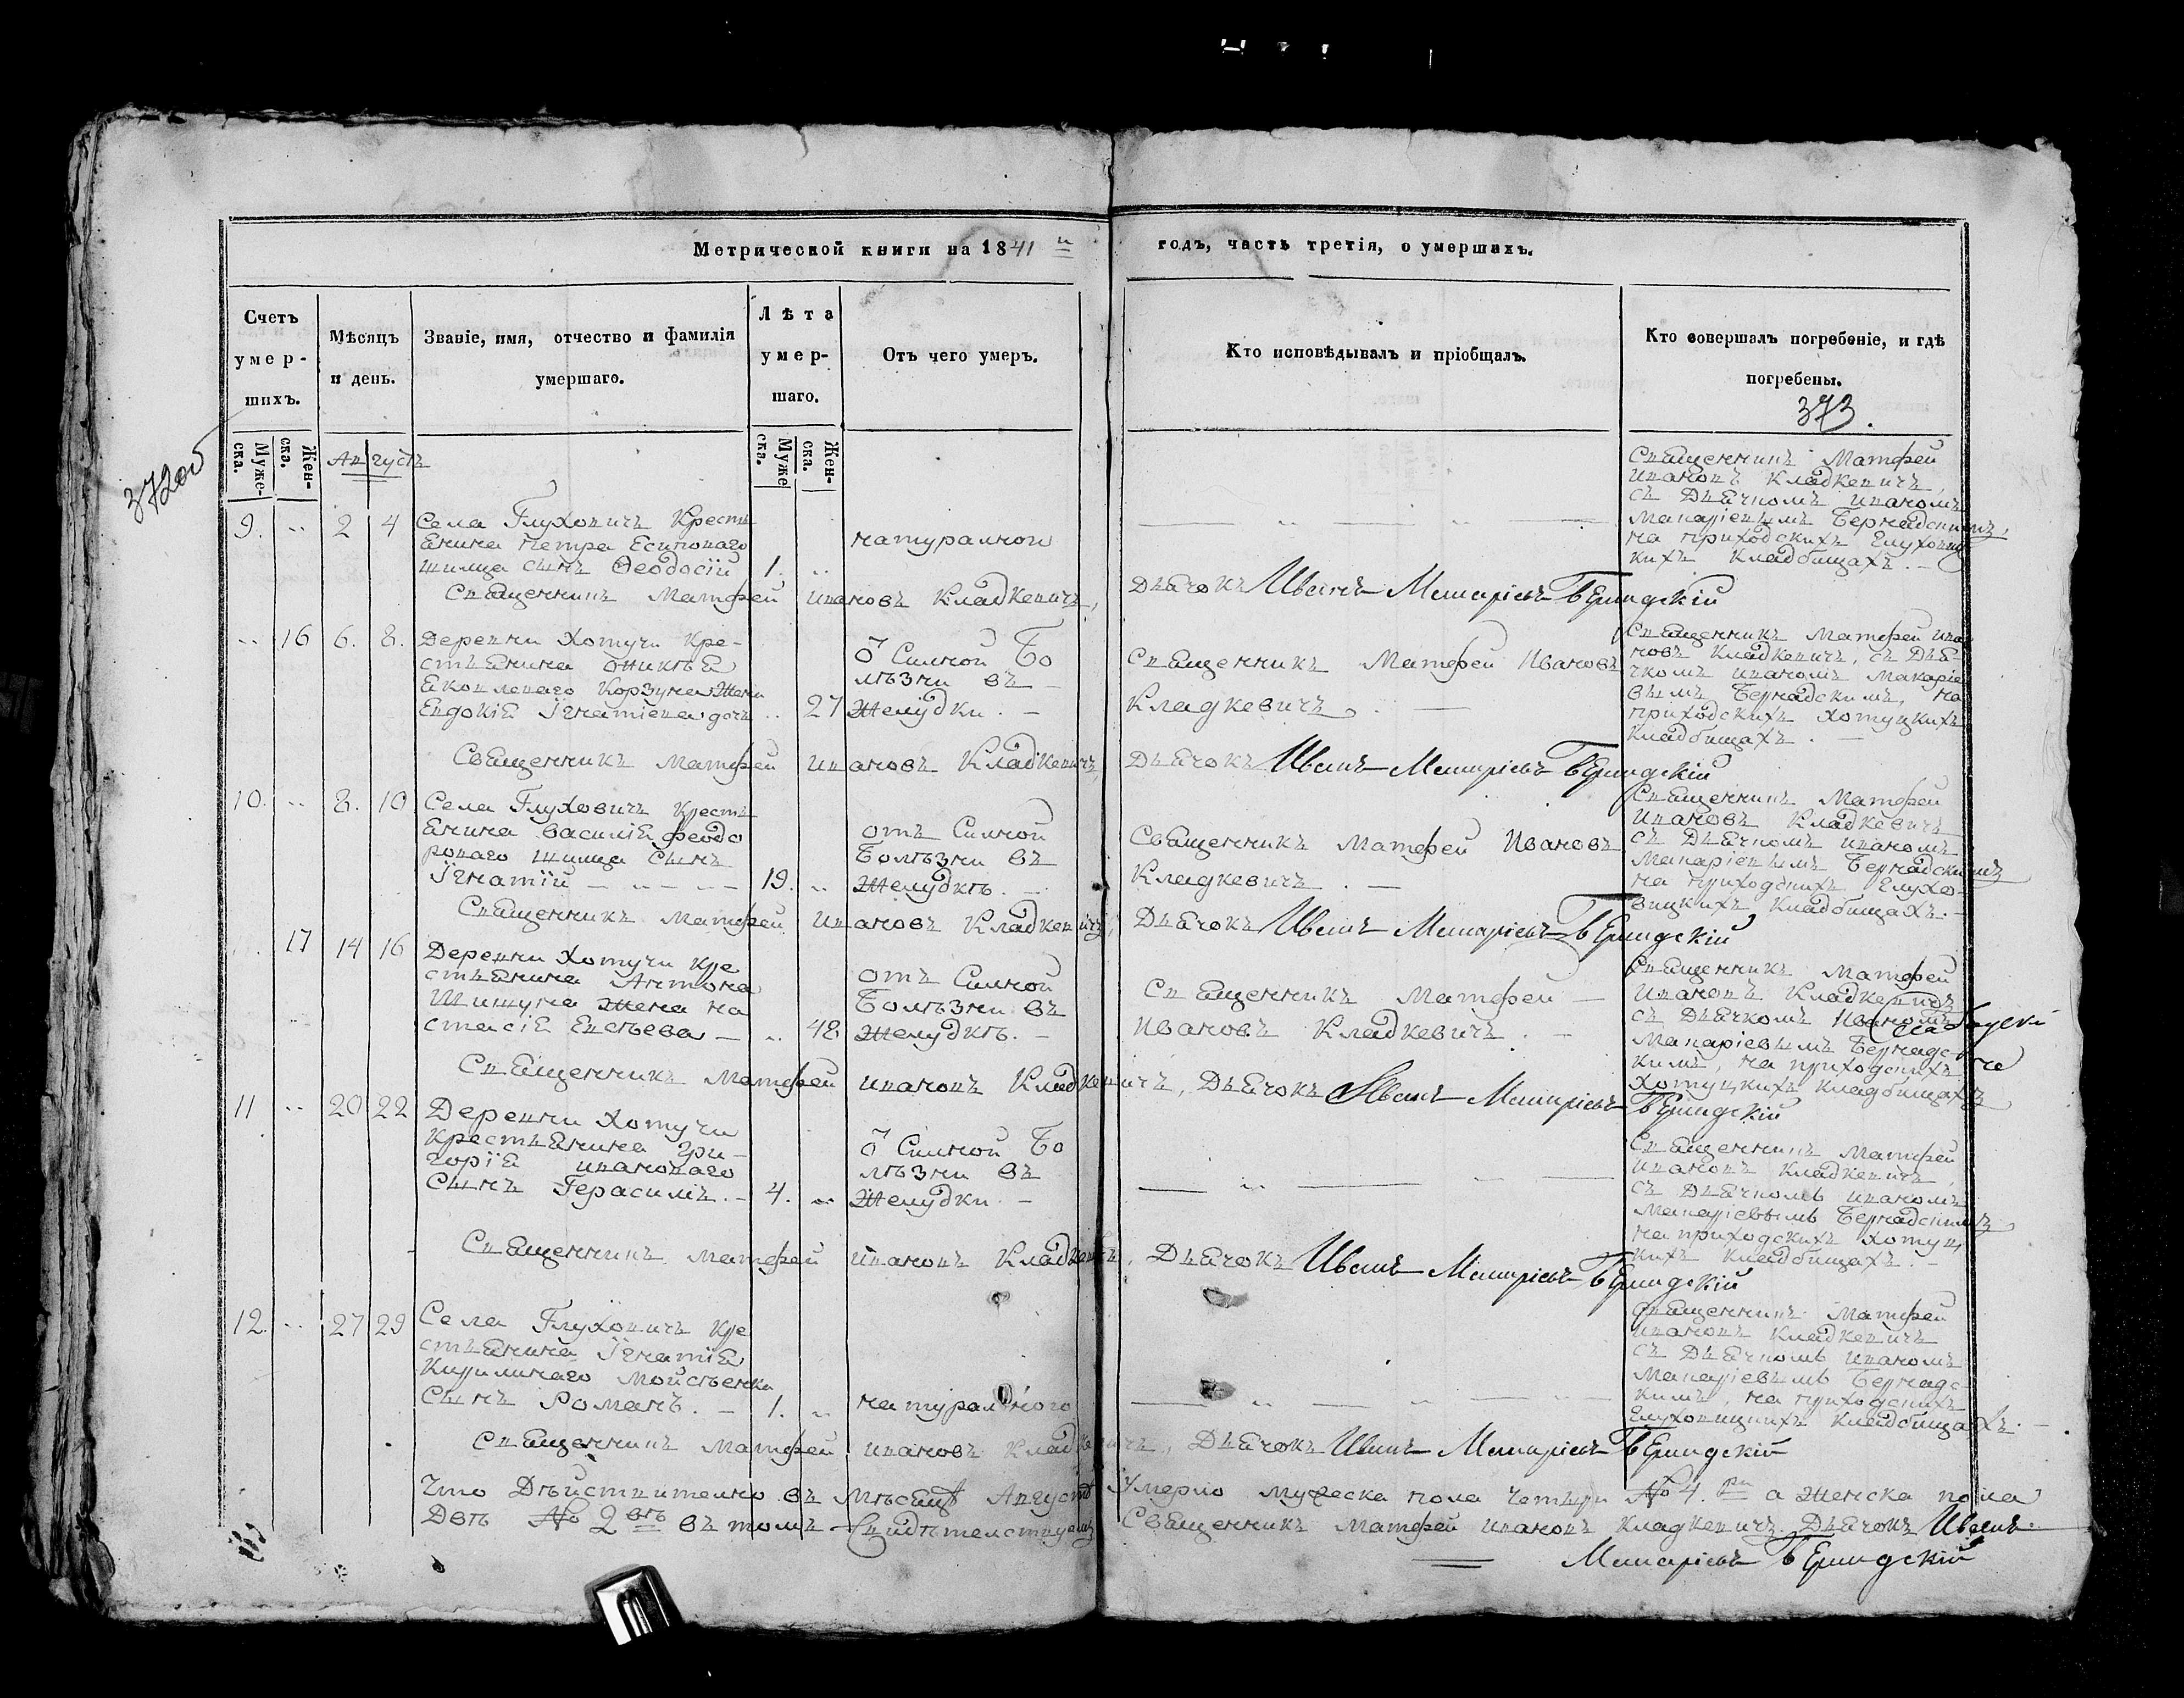 Метрической книги на 1841 й годъ, часть третія, о умершихъ.
Счетъ умер-шихъ.
Муже-ска.
Жен-ска.
Мѣсяцъ и день.
Званіе, имя, отчество и фамилія умершаго.
Лѣта умер-шаго.
Муже ска.
Жен-ска.
Отъ чего умеръ.
Кто исповѣдывалъ и пріобщалъ.
Кто совершалъ погребеніе, и гдѣ погребены.
373.
372об
Августъ
9. 2 4
Села Глуховичъ Крестъ
янина Петра Есиповаго
сынъ Ѳеодосій 1.
натуралной
Священникъ Матфей
Ивановъ Кладкевичъ,
съ Дьячкомъ Иваномъ
Макаріевымъ Бернадскимъ,
на приходскихъ Глуховиц
кихъ Кладбищахъ.
Священникъ Матфей Ивановъ Кладкевичъ, Дьячокъ Иванъ Макаріевъ Бернадскій
16 6. 8.
Деревни Хотучи Кре-
стьянина Оникѣя
Яковлеваго Корзуна жена
Евдокія Ігнатіева дочь 27
Ѿ Силной Бо
лѣзни въ
Желудки. -
Священникъ Матфей Ивановъ
Кладкевичъ. -
Священникъ Матфей Ива
новъ Кладкевичъ, съ Дья-
чкомъ Иваномъ Макаріе
вымъ Бернадскимъ, на
приходскихъ Хотуцкихъ
Кладбищахъ. -
Священникъ Матфей Ивановъ Кладкевичъ, Дьячокъ Иванъ Макаріевъ Бернадскій
10. 8. 10
Села Глуховичъ Крестъ
янина Василія Феодо
роваго сынъ
Ігнатій 19.
отъ Силной
Болѣзни въ
Желудкѣ. -
Священникъ Матфей Ивановъ
Кладкевичъ. -
Священникъ Матфей
Ивановъ Кладкевичъ
съ Дьячкомъ Иваномъ
Макаріевымъ Бернадскимъ
на приходскихъ Глухо-
вицкихъ Кладбищахъ. -
Священникъ Матфей Ивановъ Кладкевичъ, Дьячокъ Иванъ Макаріевъ Бернадскій
17 14 16
Деревни Хотучи Кре
стьянина Антона
Шишуна Жена На
стасія Евсѣева - 48
отъ Силной
Болѣзни въ
Желудкѣ. -
Священникъ Матфей -
Ивановъ Кладкевичъ. -
Священникъ Матфей
Ивановъ Кладкевичъ
съ Дьячкомъ Иваномъ
Макаріевымъ Бернадс-
кимъ, на приходскихъ
Хотуцкихъ Кладбищахъ
Священникъ Матфей Ивановъ Кладкевичъ, Дьячокъ Иванъ Макаріевъ Бернадскій
11 20 22
Деревни Хотучи
Крестьянина Гри-
горія Иановаго
Сынъ Герасимъ. - 4.
Ѿ Силной Бо
лѣзни въ
Желудки. -
Священникъ Матфей
Ивановъ Кладкевичъ,
съ Дьячкомъ Иваномъ
Макаріевымъ Бернадскимъ
на приходскихъ Хотуц
кихъ Кладбищахъ. -
Священникъ Матфей Ивановъ Кладкевичъ, Дьячокъ Иванъ Макаріевъ Бернадскій
12. 27 29
Села Глуховичъ Кре
стьянина Ігнатія
Кирилинаго Мойсѣенка
Сынъ Романъ. - 1.
натуралного
Священникъ Матфей
Ивановъ Кладкевичъ
съ Дьячкомъ Иваномъ
Макаріевымъ Бернадс-
кимъ, на приходскихъ
Глуховицкихъ Кладбищахъ. -
Священникъ Матфей Ивановъ Кладкевичъ, Дьячокъ Иванъ Макаріевъ Бернадскій
Что Дѣйствително въ Мѣсяцѣ Августѣ Умерло мужеска пола Четыри № 4.ри а Женска пола
Двѣ № 2 вѣ въ томъ Свидѣтелствуемъ Священникъ Матфей Ивановъ Кладкевичъ Дьячокъ Иванъ
Макаріевъ Бернадскій